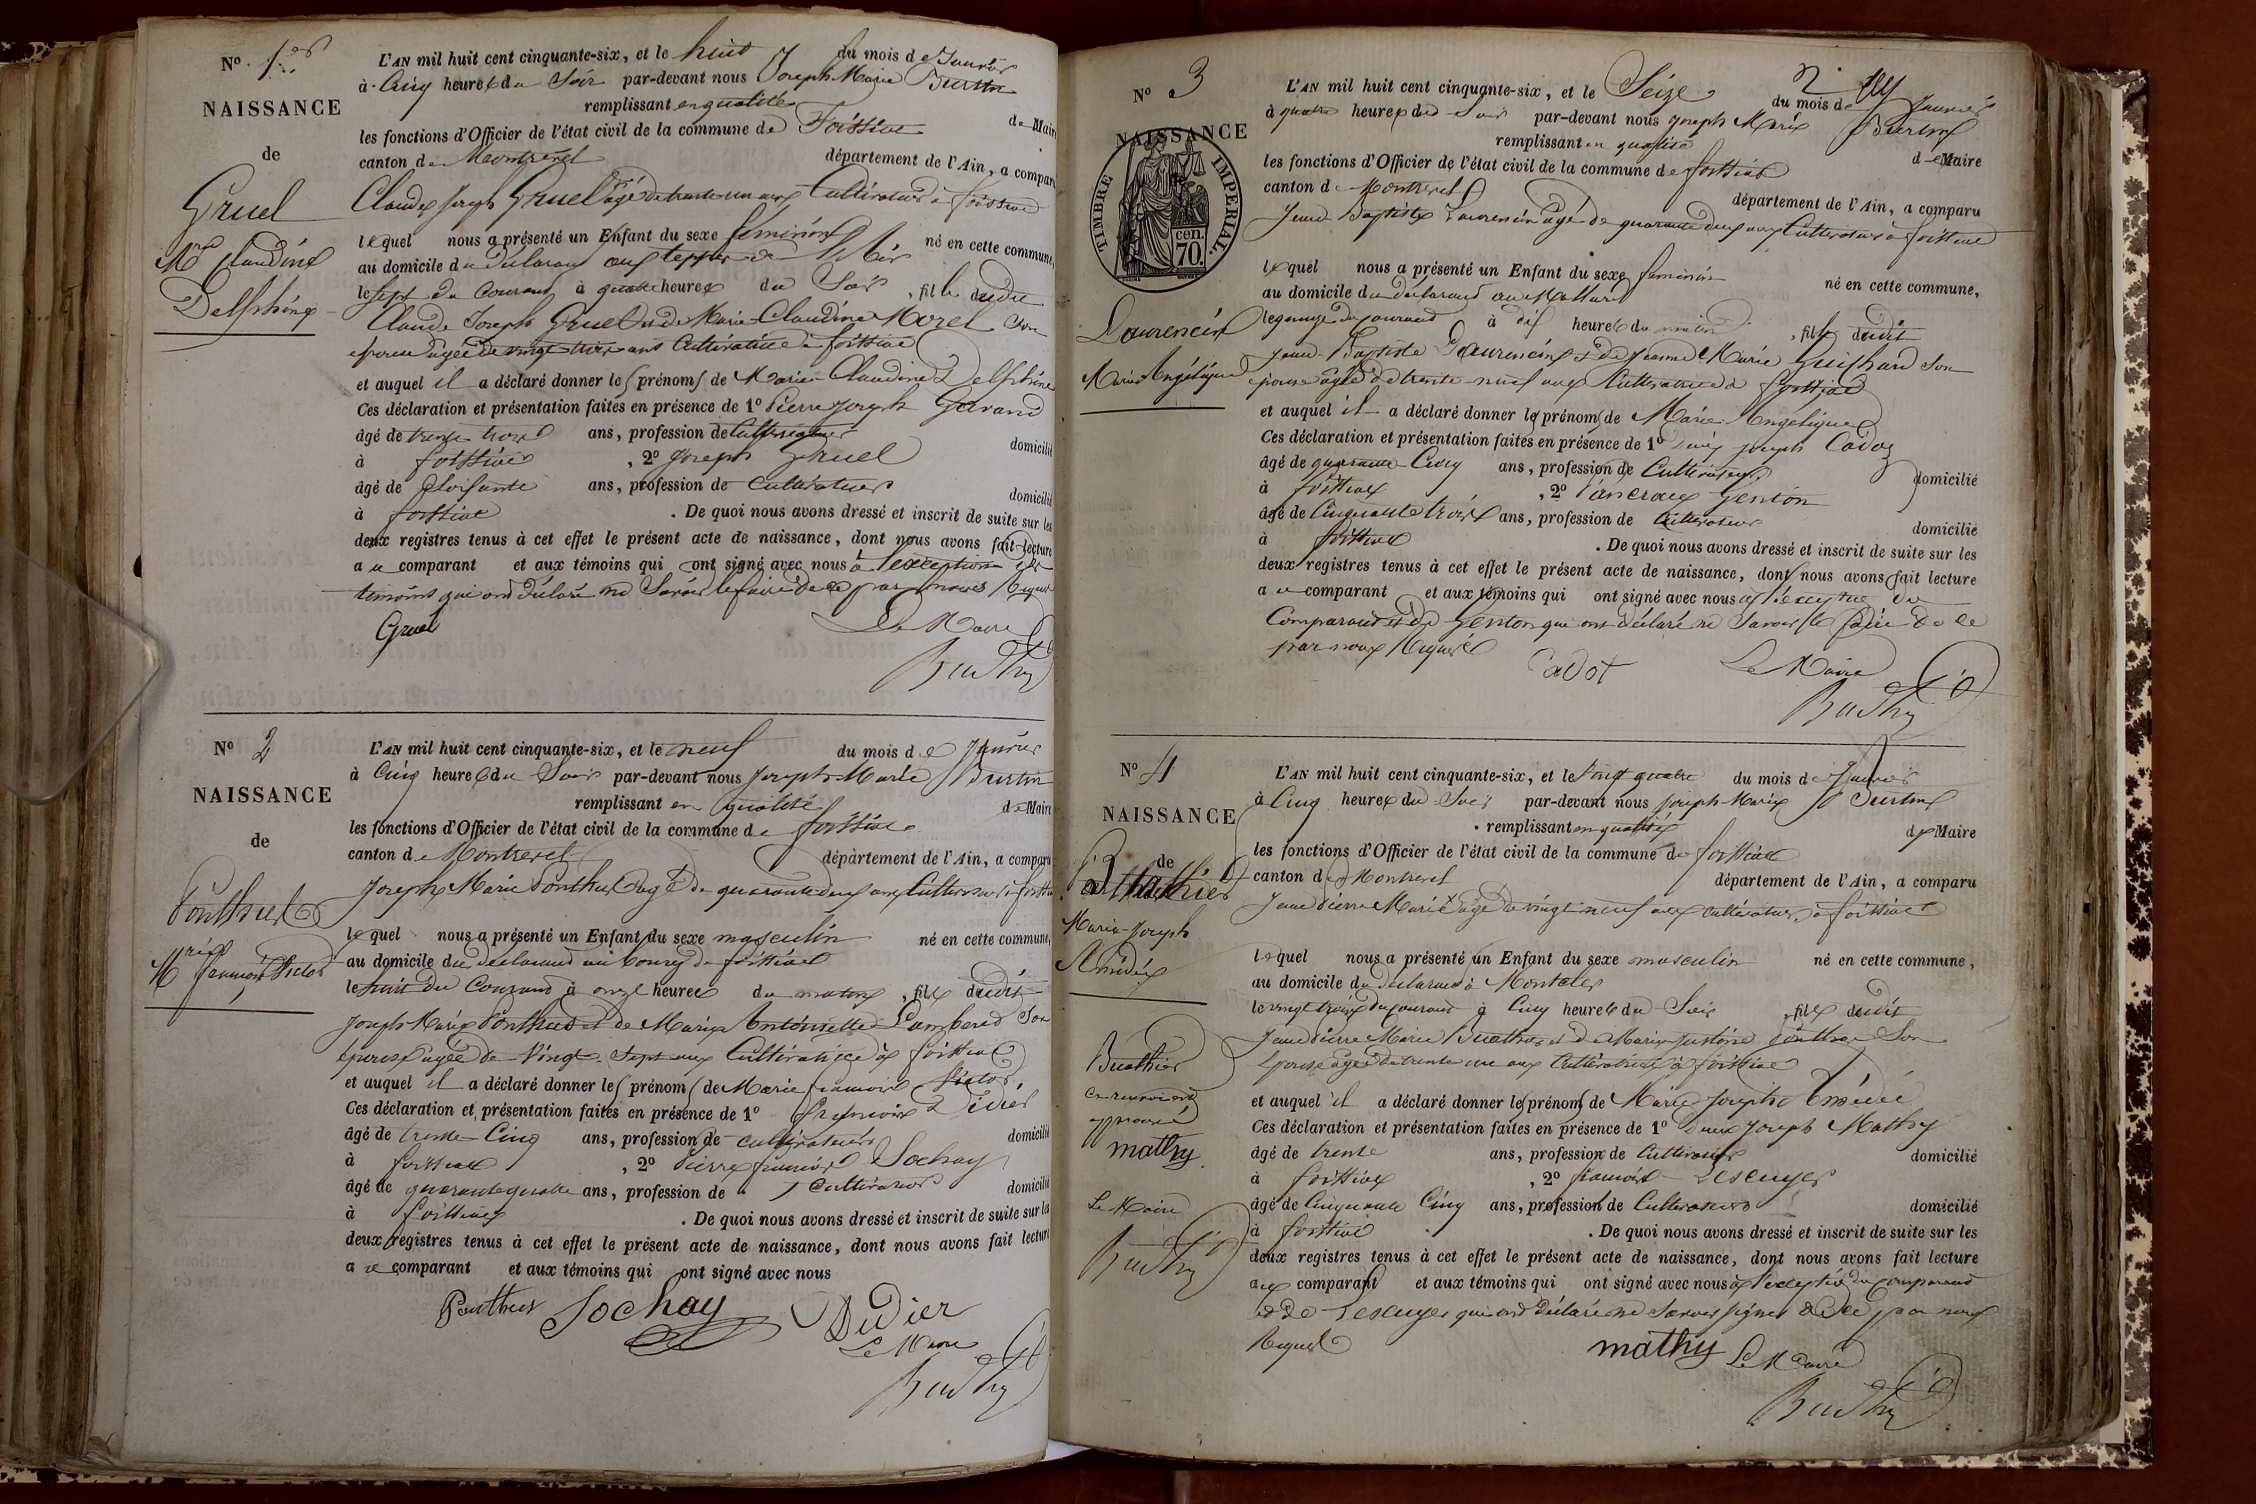 No 1er
NAISSANCE
de
Gruel
Mie Claudine
Delphine
L'AN mil huit cent cinquante-six, et le huit du mois de Janvier
à Cinq heures du Soir par-devant nous Joseph Marie Burtin
remplissant en qualité de Maire
les fonctions d'Officier de l'état civil de la commune de Foissiat
canton de Montrevel département de l'Ain, a comparu
Claude Joseph Gruel âgé de trente un ans Cultivateur à foissiat
lequel nous a présenté un Enfant du sexe féminin né en cette commune,
au domicile du déclarant aux
le sept du Courant à quatre heures du Soir, fille dudit
Claude Joseph Gruel et de Marie Claudine Morel son
épouse âgée de vingt trois ans Cultivatrice à foissiat
et auquel il a déclaré donner les prénoms de Marie Claudine Delphine
Ces déclaration et présentation faites en présence de 1o Pierre Joseph
âgé de trente trois ans, profession de Cultivateur domicilié
à foissiat, 2o Joseph Gruel
âgé de Soixante ans, profession de Cultivateur domicilié
à foissiat. De quoi nous avons dressé et inscrit de suite sur les
deux registres tenus à cet effet le présent acte de naissance, dont nous avons fait lecture
au comparant et aux témoins qui ont signé avec nous à l'exception des
témoins qui ont déclaré ne Savoir le faire de ce par nous Requis
Gruel Le Maire
Burtin
No 2
NAISSANCE
de
Ponthus
Mie françois Victor
L'AN mil huit cent cinquante-six, et le neuf du mois de Janvier
à Cinq heures du Soir par-devant nous Joseph Marie Burtin
remplissant en qualité de Maire
les fonctions d'Officier de l'état civil de la commune de foissiat
canton de Montrevel département de l'Ain, a comparu
Joseph Marie Ponthus âgé de quarante deux ans Cultivateur à foissiat
lequel nous a présenté un Enfant du sexe masculin né en cette commune,
au domicile du déclarant au bourg de foissiat
le huit du Courant à onze heures du matin, fils dudit
Joseph Marie Ponthus et de Marie Antoinette Lambered Son
épouse âgée de Vingt Sept ans Cultivatrice à foissiat
et auquel il a déclaré donner les prénoms de Marie françois Victor
Ces déclaration et présentation faites en présence de 1o françois Didier
âgé de trente Cinq ans, profession de cultivateur domicilié
à foissiat, 2o Pierre françois Sochay
âgé de quarante quatre ans, profession de Cultivateur domicilié
à foissiat. De quoi nous avons dressé et inscrit de suite sur les
deux registres tenus à cet effet le présent acte de naissance, dont nous avons fait lecture
au comparant et aux témoins qui ont signé avec nous
Ponthus Sochay Didier
Le Maire
Burtin
No 3
NAISSANCE
TIMBRE IMPERIAL.
cen. 70.
Laurencin
Marie Angélique
L'AN mil huit cent cinquante-six, et le Seize du mois de Janvier
à quatre heures du Soir par-devant nous Joseph Marie Burtin
remplissant en qualité de Maire
les fonctions d'Officier de l'état civil de la commune de foissiat
canton de Montrevel département de l'Ain, a comparu
Jean Baptiste Laurencin âgé de quarante deux ans Cultivateur à foissiat
lequel nous a présenté un Enfant du sexe feminin né en cette commune,
au domicile du déclarant au
le quinze du courant à dix heures du matin, fille dudit
Jean Baptiste Laurencin et de Jeanne Marie Guichard Son
épouse âgée de trente neuf ans Cultivatrice à foissiat
et auquel il a déclaré donner les prénoms de Marie Angélique
Ces déclaration et présentation faites en présence de 1o Joseph Cadoz
âgé de quarante Cinq ans, profession de Cultivateur domicilié
à foissiat, 2o Pancrace Genton
âgé de Cinquante trois ans, profession de Cultivateur domicilié
à foissiat. De quoi nous avons dressé et inscrit de suite sur les
deux registres tenus à cet effet le présent acte de naissance, dont nous avons fait lecture
au comparant et aux témoins qui ont signé avec nous du
Comparant et de Genton qui ont déclaré ne Savoir le faire de ce
par nous Requis
Cadot Le Maire
Burtin
No 4
NAISSANCE
de
Buathier
Marie Joseph
Amédée
Buathier
en renvoi
approuvé
mathy
Le Maire
Burtin
L'AN mil huit cent cinquante-six, et le vingt quatre du mois de Janvier
à Cinq heures du Soir par-devant nous Joseph Marie Burtin
remplissant en qualité de Maire
les fonctions d'Officier de l'état civil de la commune de foissiat
canton de Montrevel département de l'Ain, a comparu
Jean Pierre Marie âgé de vingt neuf ans cultivateur à foissiat
lequel nous a présenté un Enfant du sexe masculin né en cette commune,
au domicile du déclarant à
le vingt trois du courant à Cinq heures du Soir, fils dudit
Jean Pierre Marie Buathier et de Marie Justine Son
épouse âgée de trente un ans Cultivatrice à foissiat
et auquel il a déclaré donner les prénoms de Marie Joseph Amédée
Ces déclaration et présentation faites en présence de 1o Joseph Mathy
âgé de trente ans, profession de Cultivateur domicilié
à foissiat, 2o françois Lescuyer
âgé de Cinquante Cinq ans, profession de Cultivateur domicilié
à foissiat. De quoi nous avons dressé et inscrit de suite sur les
deux registres tenus à cet effet le présent acte de naissance, dont nous avons fait lecture
aux comparant et aux témoins qui ont signé avec nous à l'exception du comparant
et de Lescuyer qui ont déclaré ne Savoir signer de ce par nous
Requis
mathy Le Maire
Burtin